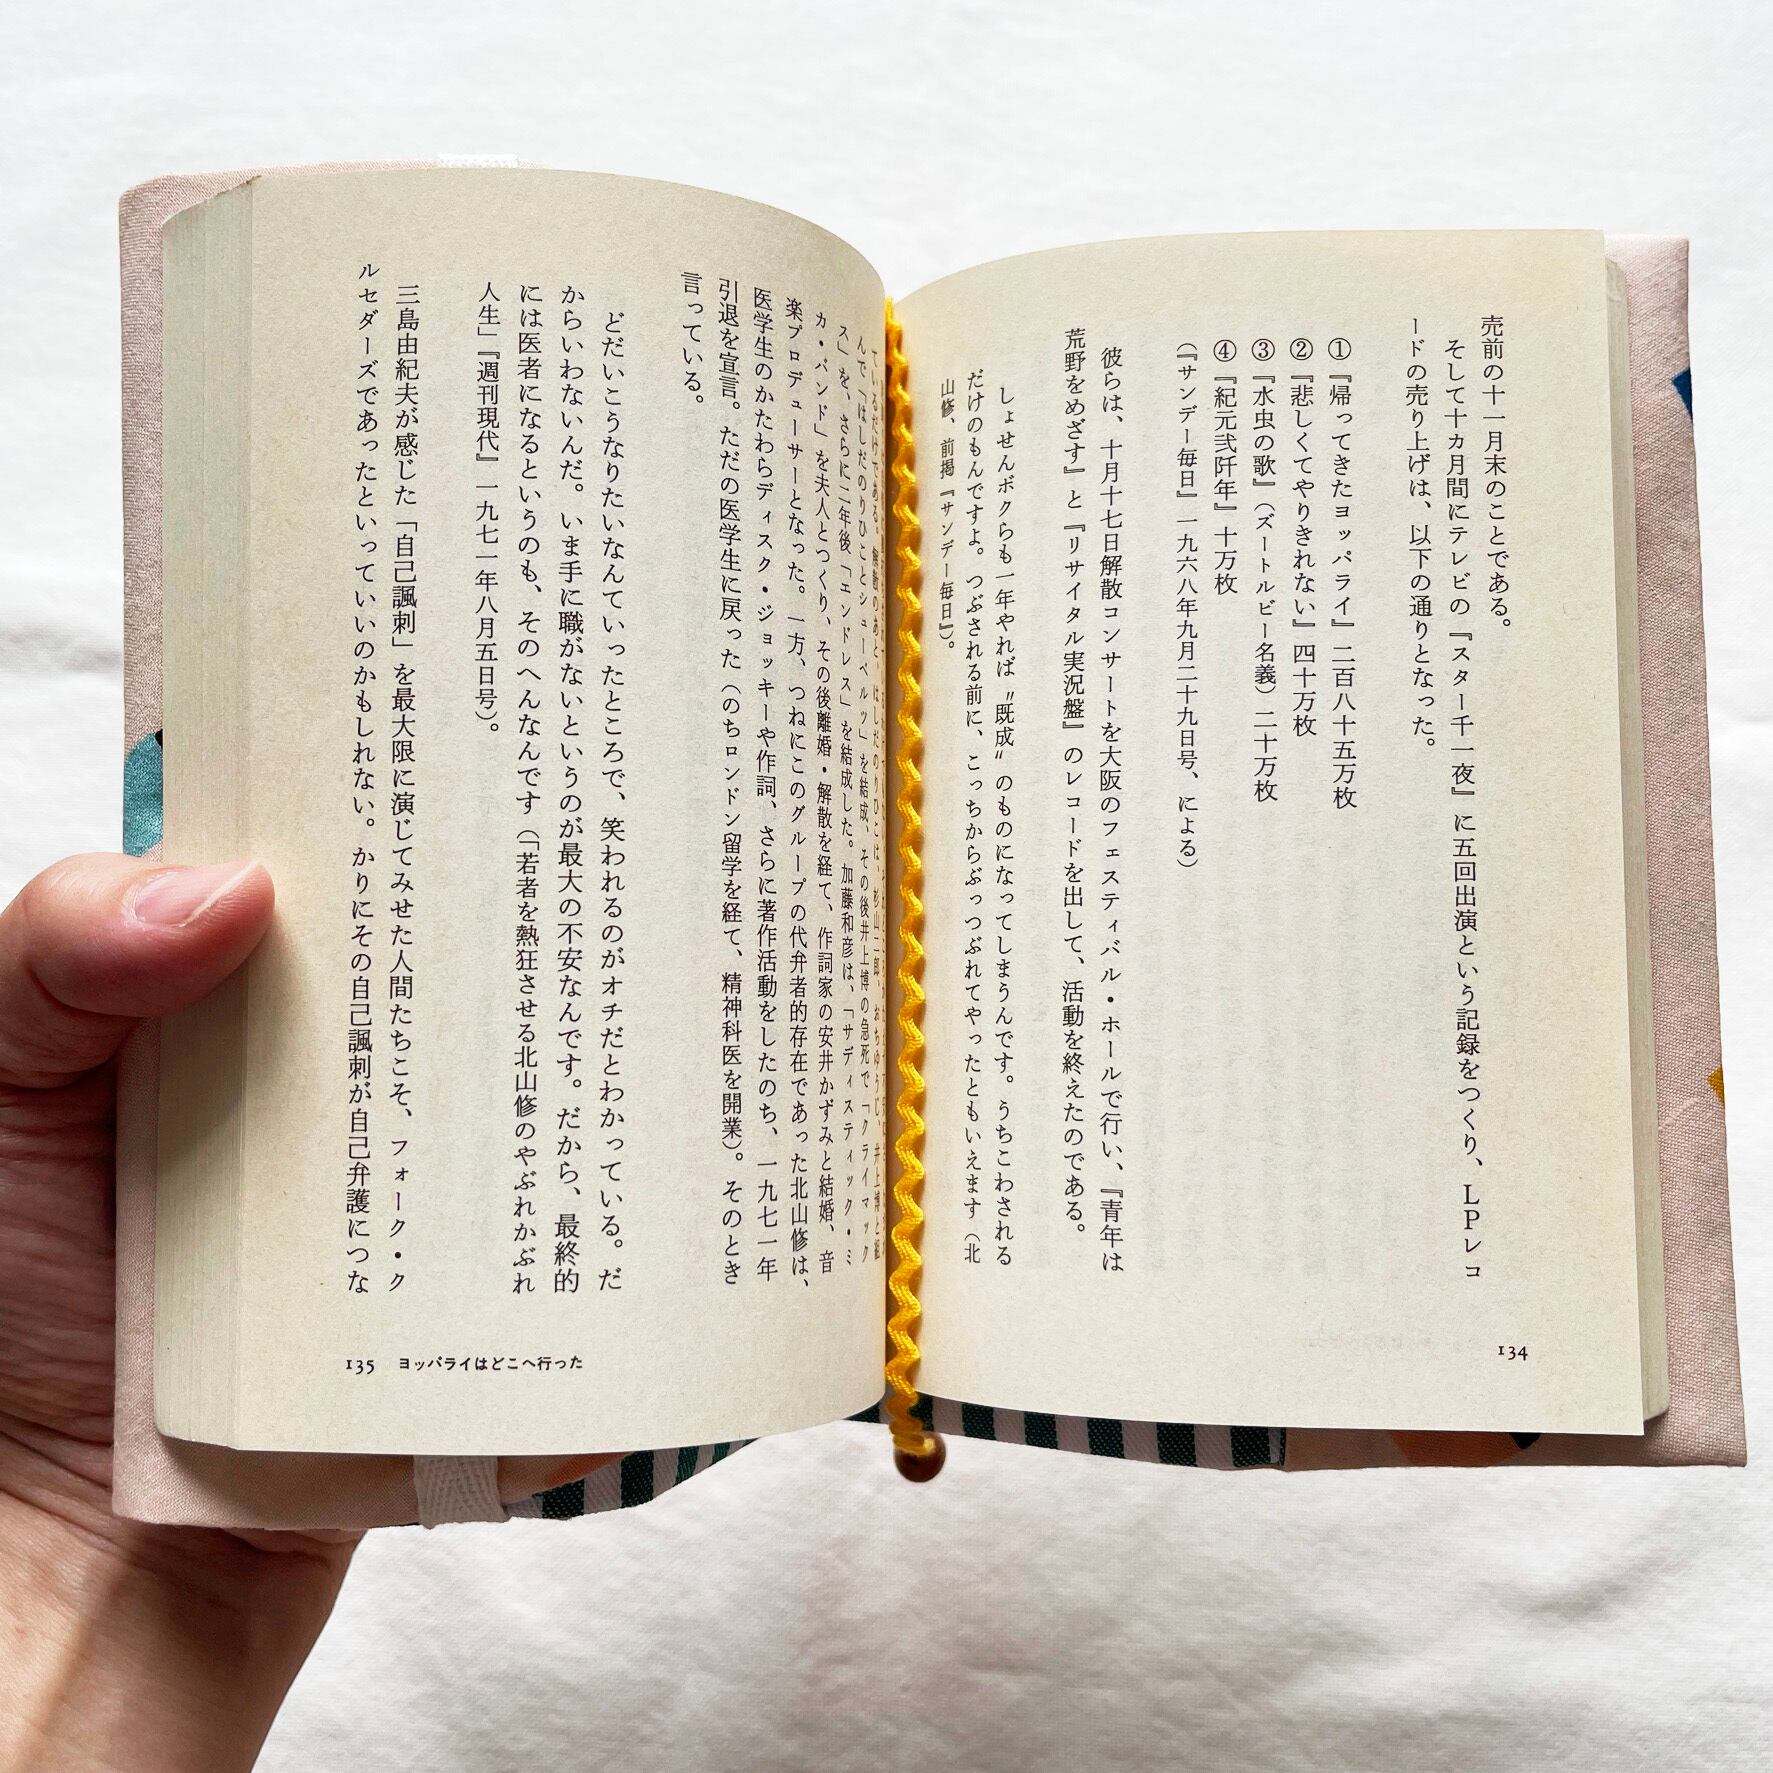 売前の十一月末のことである。
そして十カ月間にテレビの『スター千一夜』に五回出演という記録をつくり、LPレコ
ードの売り上げは、以下の通りとなった。
①『帰ってきたヨッパライ』二百八十五万枚
②『悲しくてやりきれない』四十万枚
③『水虫の歌』（ズートルビー名義）二十万枚
④『紀元弐阡年』十万枚
（『サンデー毎日』一九六八年九月二十九日号、による）
彼らは、十月十七日解散コンサートを大阪のフェスティバル・ホールで行い、『青年は
荒野をめざす』と『リサイタル実況盤』のレコードを出して、活動を終えたのである。
しょせんボクらも一年やれば〝既成〟のものになってしまうんです。うちこわされる
だけのもんですよ。つぶされる前に、こっちからぶっつぶれてやったともいえます（北
山修、前掲『サンデー毎日』）。
134
ているだけである。解散のあと、はしだのりひこは、杉山二郎、おちゆうじ、井上博と組
んで「はしだのりひことシューベルツ」を結成、その後井上博の急死で「クライマック
ス」を、さらに二年後「エンドレス」を結成した。加藤和彦は、「サディスティック・ミ
カ・バンド」を夫人とつくり、その後離婚・解散を経て、作詞家の安井かずみと結婚、音
楽プロデューサーとなった。一方、つねにこのグループの代弁者的存在であった北山修は、
医学生のかたわらディスク・ジョッキーや作詞、さらに著作活動をしたのち、一九七一年
引退を宣言。ただの医学生に戻った（のちロンドン留学を経て、精神科医を開業）。そのとき
言っている。
どだいこうなりたいなんていったところで、笑われるのがオチだとわかっている。だ
からいわないんだ。いま手に職がないというのが最大の不安なんです。だから、最終的
には医者になるというのも、そのへんなんです（「若者を熱狂させる北山修のやぶれかぶれ
人生」『週刊現代』一九七一年八月五日号）。
三島由紀夫が感じた「自己諷刺」を最大限に演じてみせた人間たちこそ、フォーク・ク
ルセダーズであったといっていいのかもしれない。かりにその自己諷刺が自己弁護につな
135 ヨッパライはどこへ行った